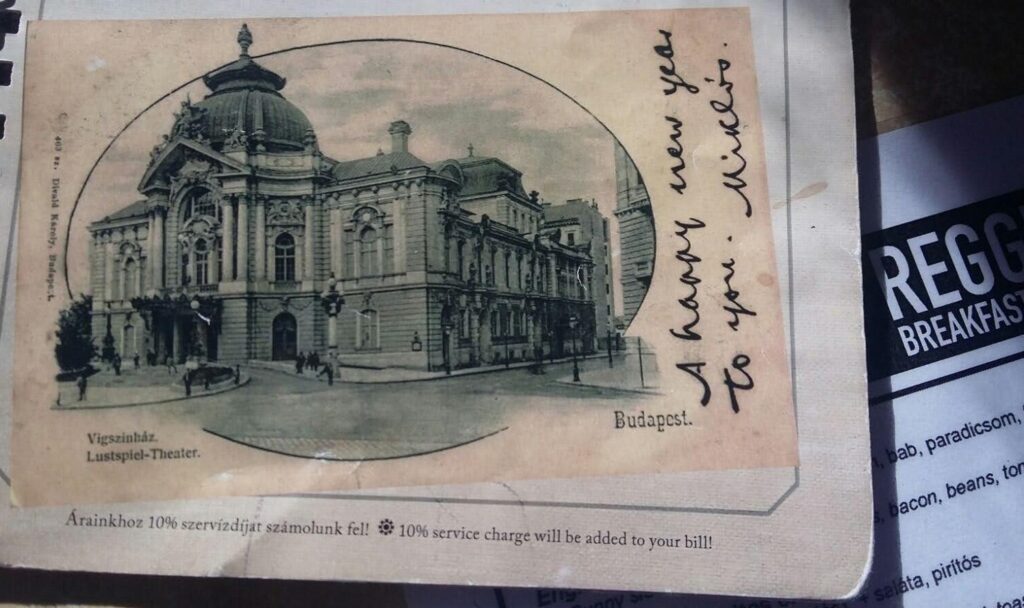 463 sz. Divald Károly, Budapest.
A happy new year
to you. Miklós.
Vigszinház.
Lustspiel-Theater.
Budapest.
Árainkhoz 10% szervízdíjat számolunk fel! 10% service charge will be added to your bill!
REGG
BREAKFAST
bab, paradicsom,
bacon, beans,
saláta, pirítós